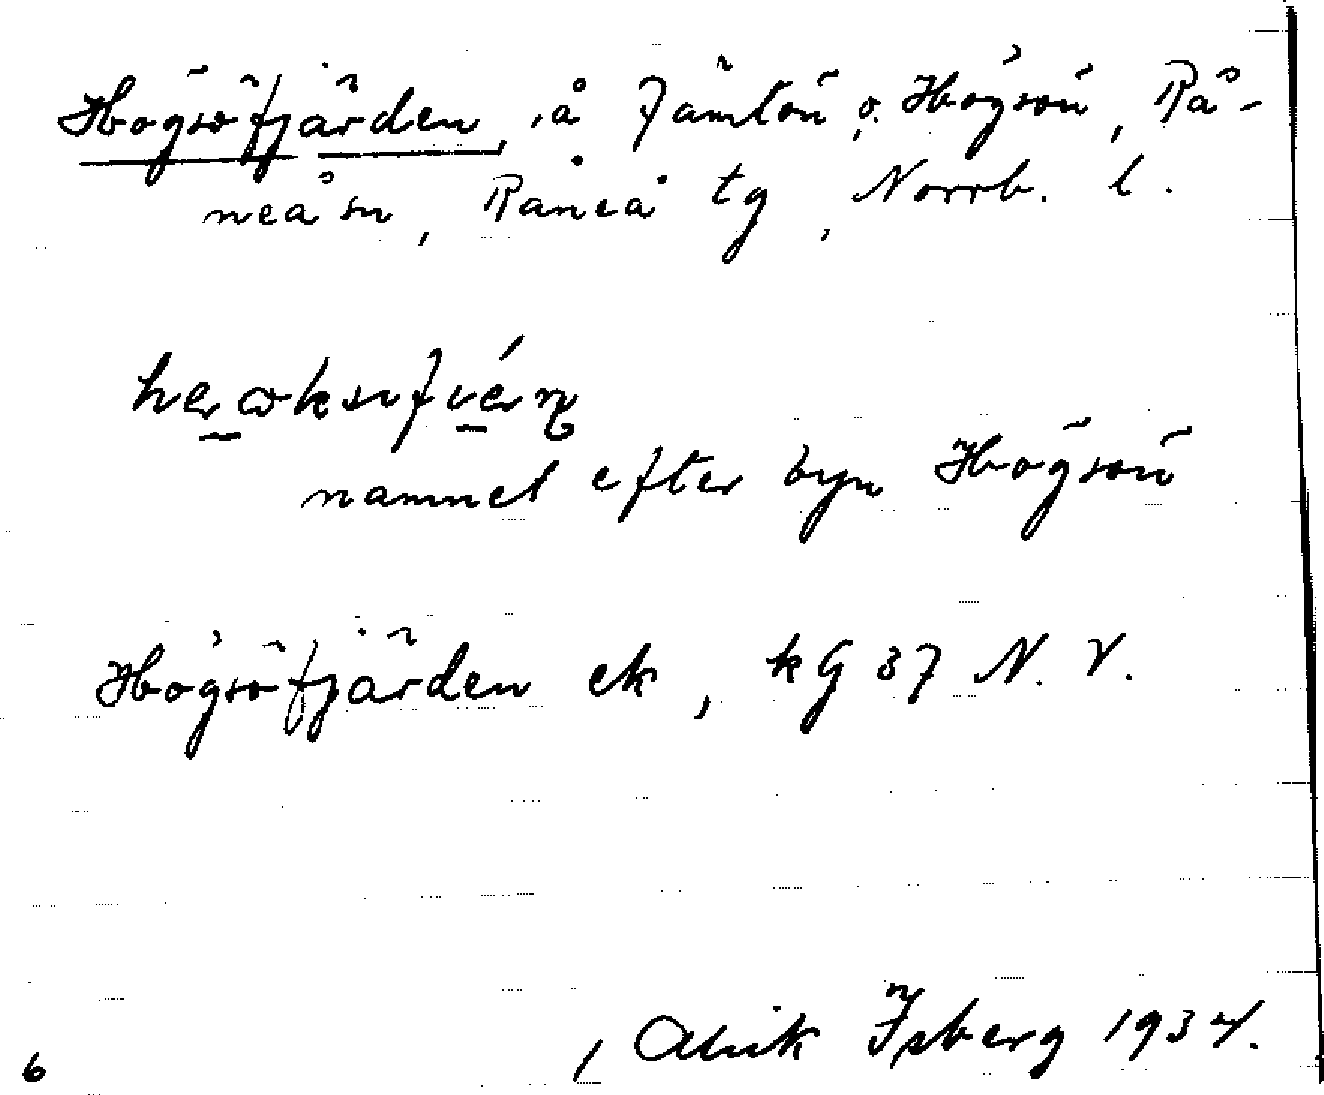 Högsöfjärden, å Jämtön o. Högsön, Rå-
neå sn, Råneå tg, Norrb. l.
namnet efter byn Högsön
Högsöfjärden ek, kG 37 N.V.
Alvik Isberg 1934.
6